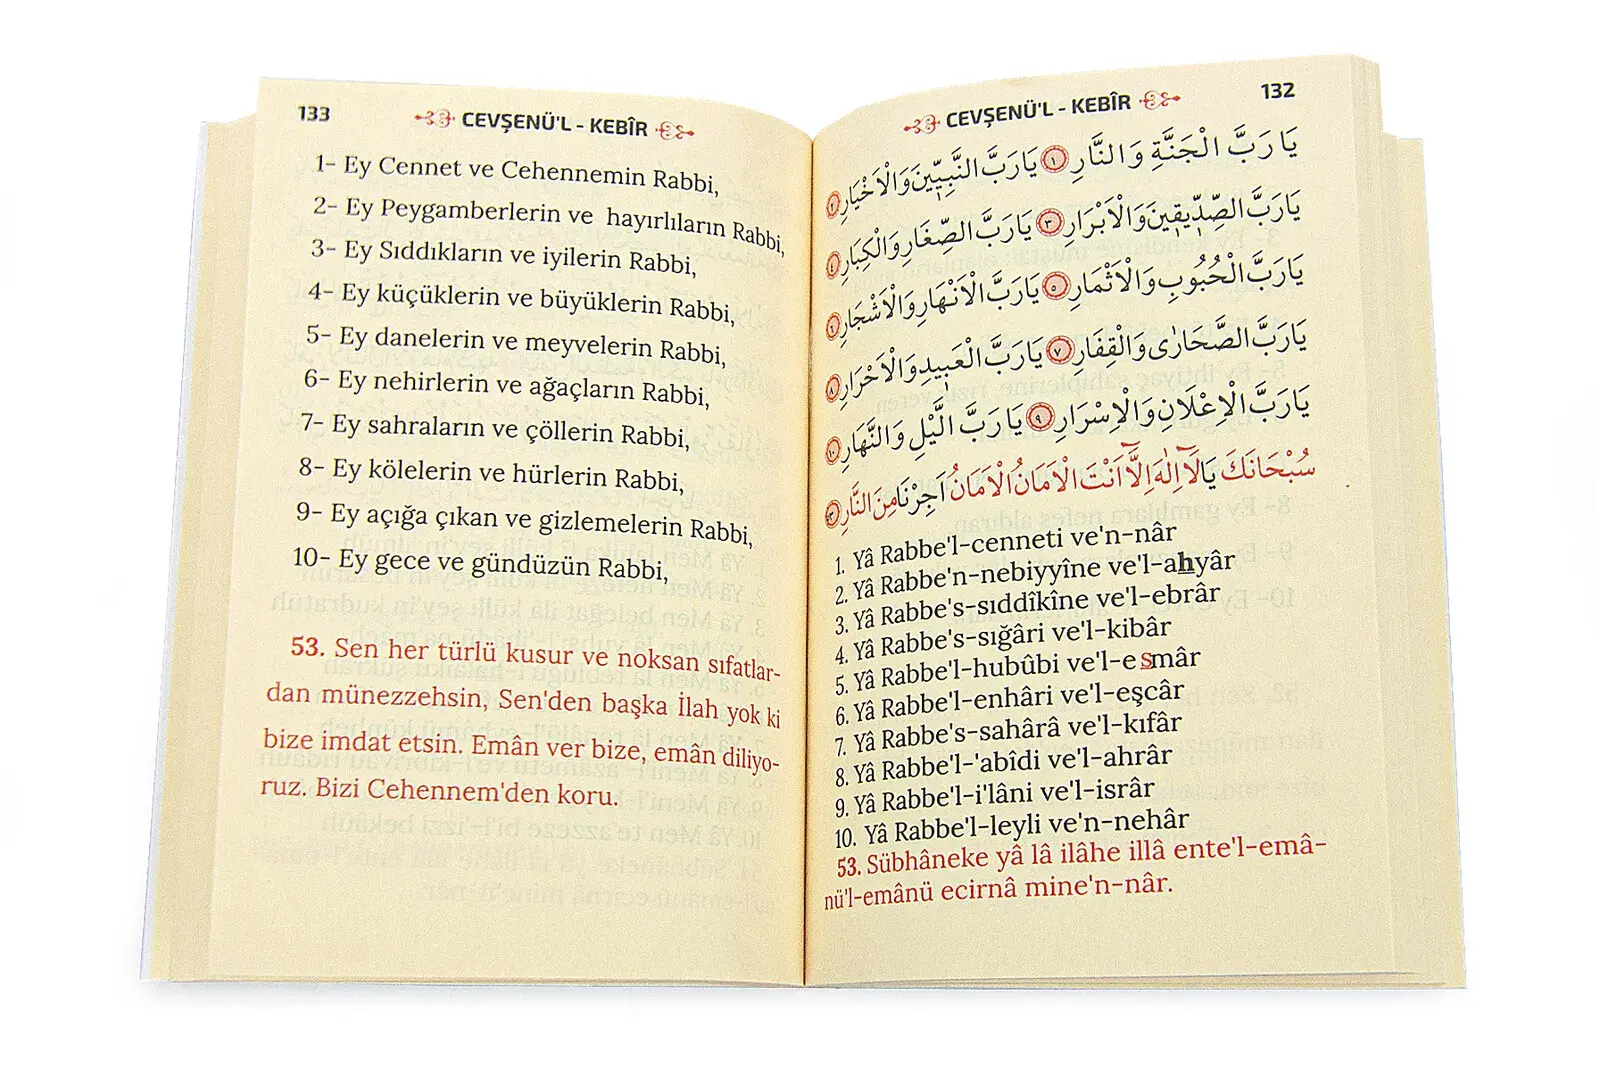 133
CEVŞENÜ'L - KEBÎR
1- Ey Cennet ve Cehennemin Rabbi,
2- Ey Peygamberlerin ve hayırlıların Rabbi,
3- Ey Sıddıkların ve iyilerin Rabbi,
4- Ey küçüklerin ve büyüklerin Rabbi,
5- Ey danelerin ve meyvelerin Rabbi,
6- Ey nehirlerin ve ağaçların Rabbi,
7- Ey sahraların ve çöllerin Rabbi,
8- Ey kölelerin ve hürlerin Rabbi,
9- Ey açığa çıkan ve gizlemelerin Rabbi,
10- Ey gece ve gündüzün Rabbi,
53. Sen her türlü kusur ve noksan sıfatlar-
dan münezzehsin, Sen'den başka İlah yok ki
bize imdat etsin. Emân ver bize, emân diliyo-
ruz. Bizi Cehennem'den koru.
CEVŞENÜ'L - KEBÎR
132
يَا رَبَّ الْجَنَّةِ وَالنَّارِ ١ يَارَبَّ النَّبِيّٖينَ وَالْاَخْيَارِ ٢
يَارَبَّ الصِّدّٖيقٖينَ وَالْاَبْرَارِ ٣ يَارَبَّ الصِّغَارِ وَالْكِبَارِ ٤
يَارَبَّ الْحُبُوبِ وَالْاَثْمَارِ ٥ يَارَبَّ الْاَنْهَارِ وَالْاَشْجَارِ ٦
يَارَبَّ الصَّحَارٰى وَالْقِفَارِ ٧ يَارَبَّ الْعَبٖيدِ وَالْاَحْرَارِ ٨
يَارَبَّ الْاِعْلَانِ وَالْاِسْرَارِ ٩ يَارَبَّ الَّيْلِ وَالنَّهَارِ ١٠
سُبْحَانَكَ يَا لَآ اِلٰهَ اِلَّٓا اَنْتَ الْاَمَانُ الْاَمَانُ اَجِرْنَا مِنَ النَّارِ
1. Yâ Rabbe'l-cenneti ve'n-nâr
2. Yâ Rabbe'n-nebiyyîne ve'l-ahyâr
3. Yâ Rabbe's-sıddîkîne ve'l-ebrâr
4. Yâ Rabbe's-sığâri ve'l-kibâr
5. Yâ Rabbe'l-hubûbi ve'l-esmâr
6. Yâ Rabbe'l-enhâri ve'l-eşcâr
7. Yâ Rabbe's-sahârâ ve'l-kıfâr
8. Yâ Rabbe'l-'abîdi ve'l-ahrâr
9. Yâ Rabbe'l-i'lâni ve'l-isrâr
10. Yâ Rabbe'l-leyli ve'n-nehâr
53. Sübhâneke yâ lâ ilâhe illâ ente'l-emâ-
nü'l-emânü ecirnâ mine'n-nâr.